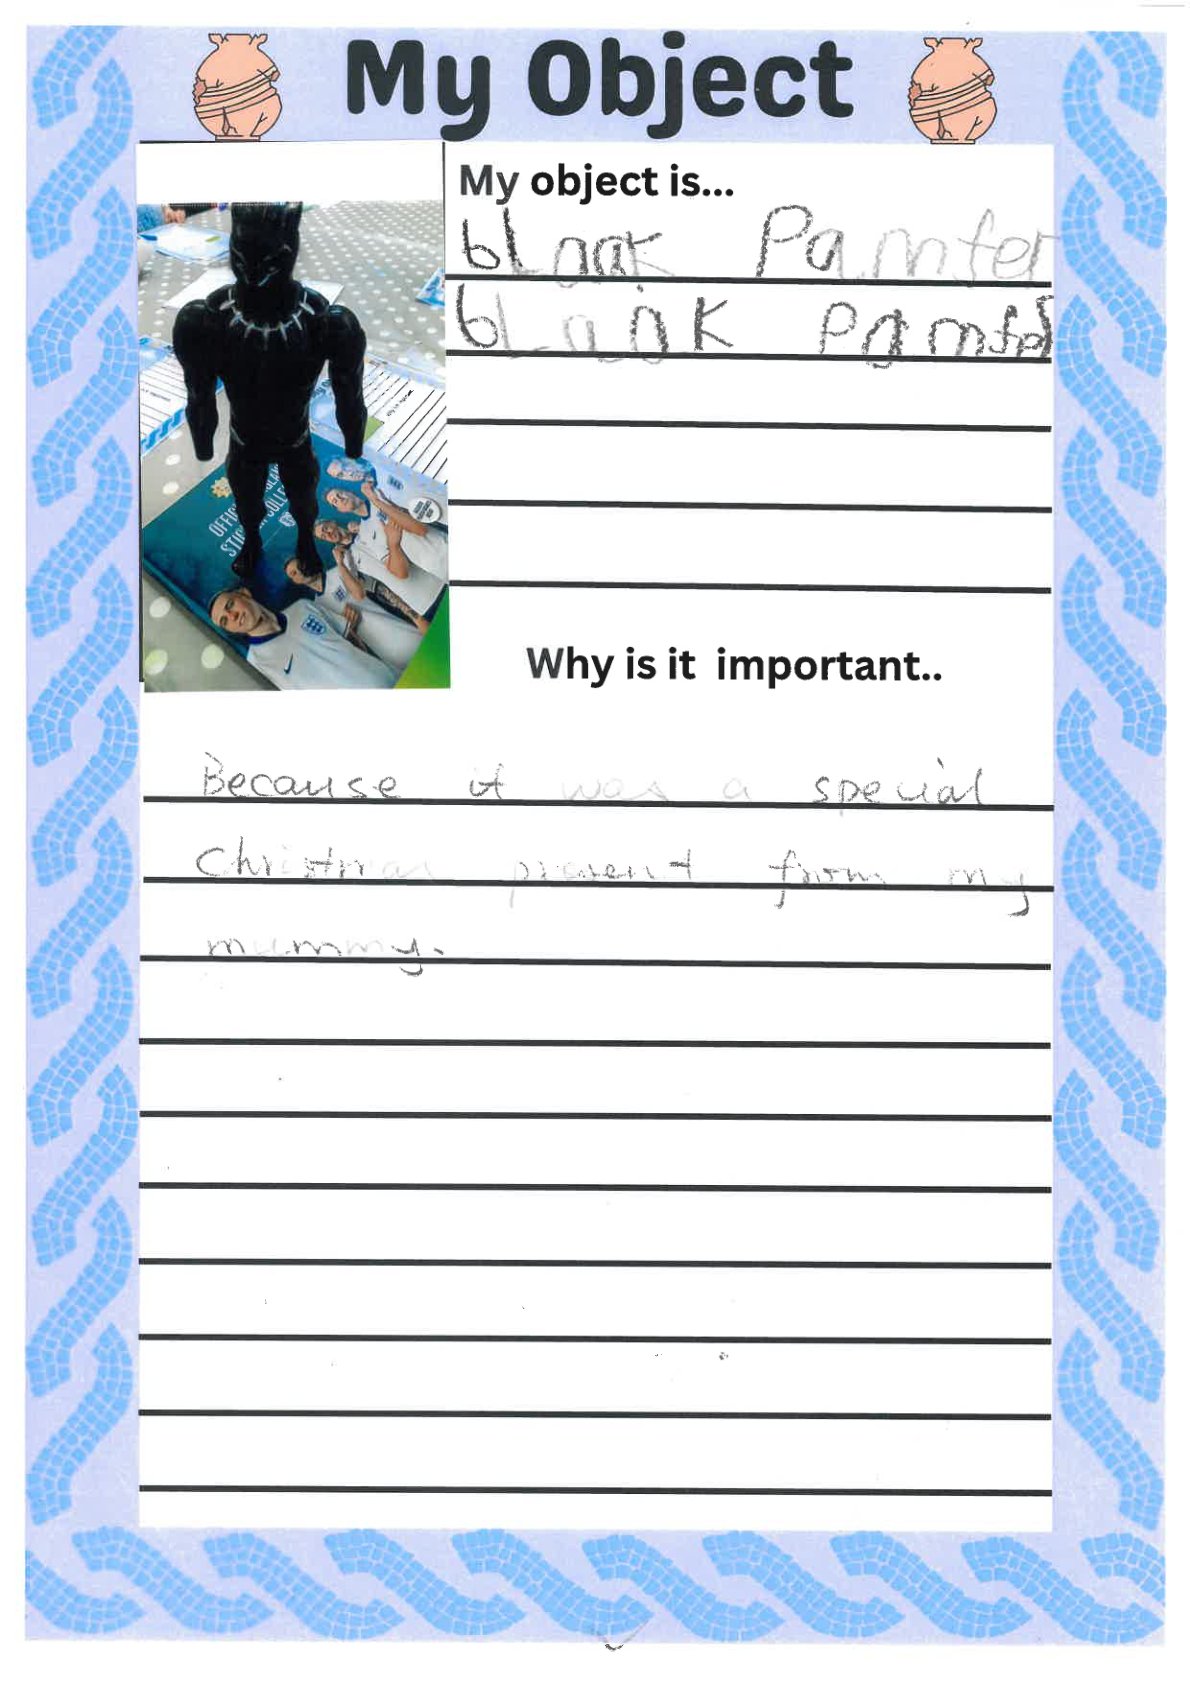 My Object
My object is...
bLaak Pamter
bLaak Pamter
OFFIC
STIC
COLLE
Why is it important..
Because it was a special
Christmas present from my
mummy.